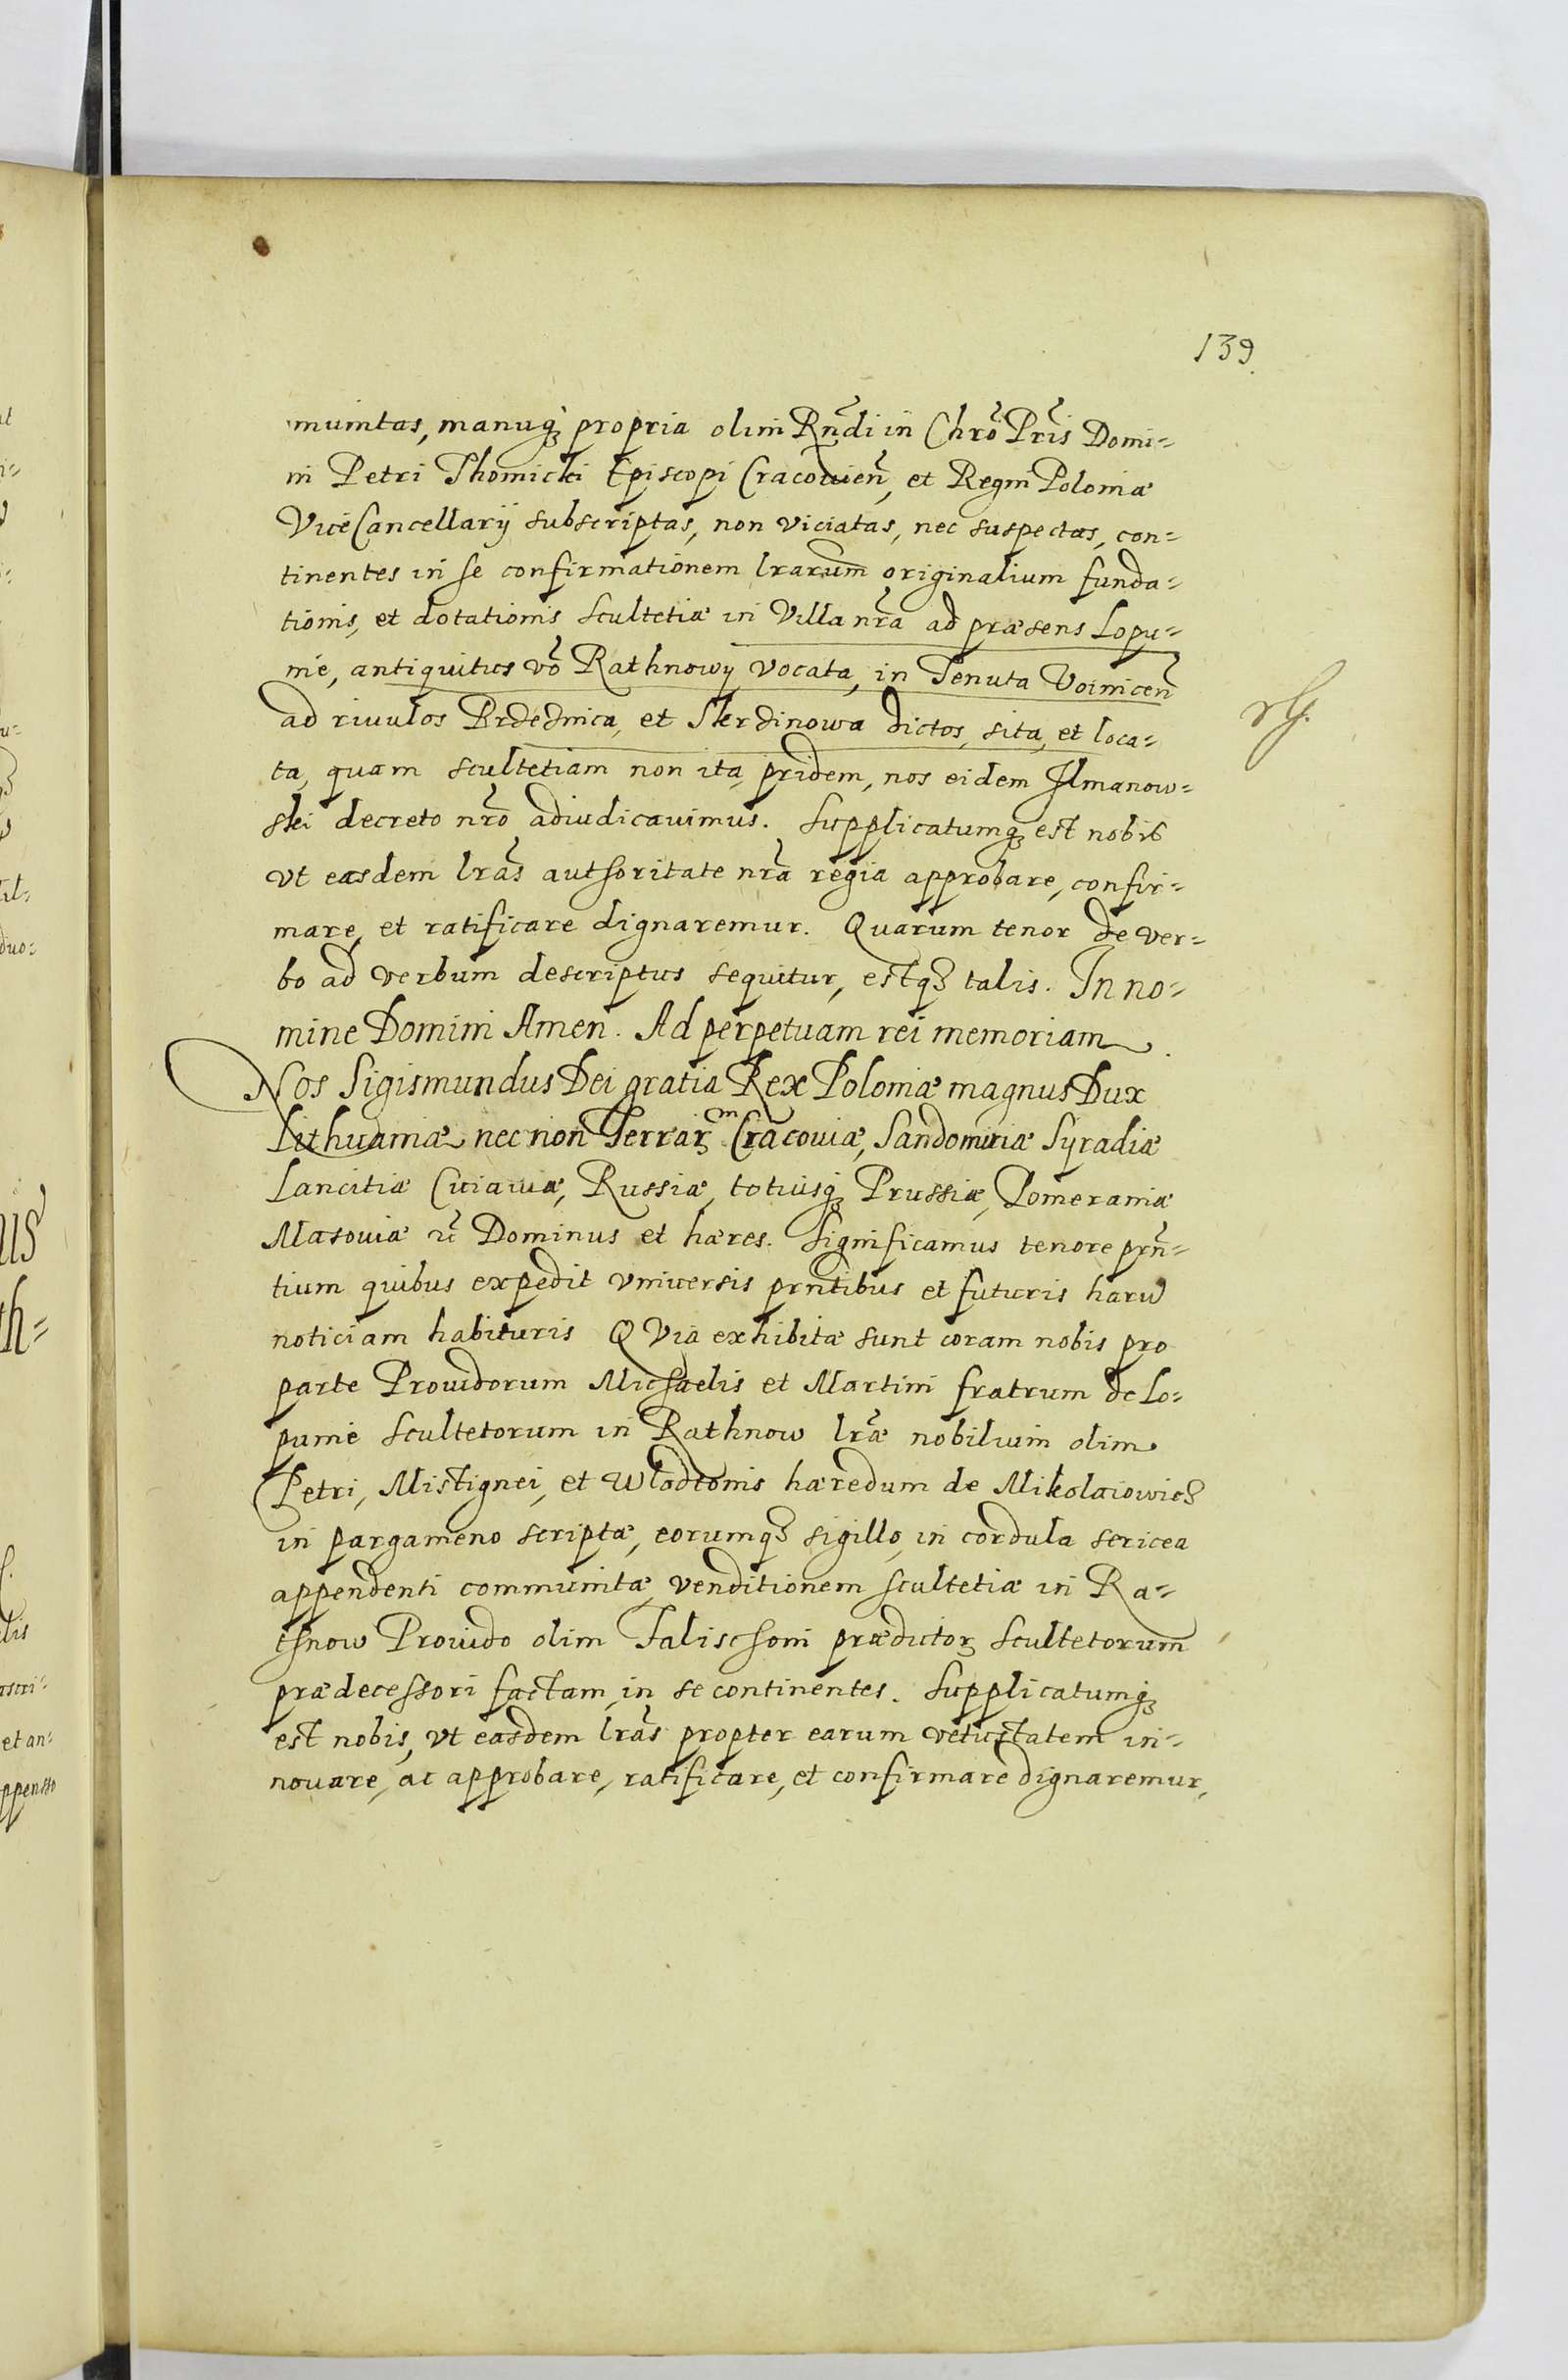 139.
munitas, manuq₃ propria olim Rñdi in Chrõ Prĩs Domi=
ni Petri Thomicki Episcopi Cracouieñ, et Regni Poloniæ
ViceCancellarij subscriptas, non viciatas, nec suspectas, con=
tinentes in se confirmationem lrarum originalium funda=
tionis, et dotationis Scultetiæ in Villa nrã ad præsens Lopu=
nie, antiquitus võ Rathnowy vocata, in Tenuta Voiniceñ
ad riuulos Brdednica, et Skrdinowa dictos, sita, et loca=
ta, quam scultetiam non ita pridem, nos eidem Ilmanow=
ski decreto nrõ adiudicauimus. Supplicatumq₃ est nobis
vt easdem lrãs authoritate nrã regia approbare, confir=
mare, et ratificare dignaremur. Quarum tenor de ver=
bo ad verbum descriptus sequitur, estq₃ talis. In no=
mine Domini Amen. Ad perpetuam rei memoriam.
Nos Sigismundus Dei gratia Rex Poloniæ magnus Dux
Lithuaniæ nec non Terrarᵐ Cracouiæ, Sandomiriæ Syradiæ
Lancitiæ Cuiauiæ, Russiæ, totiusq₃ Prussiæ, Pomeraniæ
Masouiæ &c Dominus et hæres. Significamus tenore prñ=
tium quibus expedit vniuersis prntibus et futuris harũ
noticiam habituris QVia exhibitæ sunt coram nobis pro
parte Prouidorum Michaelis et Martini fratrum de Lo=
punie Scultetorum in Rathnow lrãe nobilium olim
Petri, Mistignei, et Wlodtonis hæredum de Mikolaiowicz
in pargameno scriptæ, eorumq₃ sigillo, in cordula sericea
appendenti communitæ, venditionem scultetiæ in Ra=
thnow Prouido olim Falischoni prædictor₃ Scultetorum
prædecessori factam, in se continentes. Supplicatumq₃
est nobis, vt easdem lrãs propter earum vetustatem in=
nouare, ac approbare, ratificare, et confirmare dignaremur,